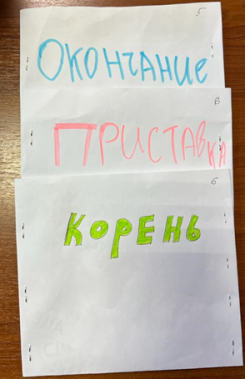 5
Окончание
в
Приставка
б
Корень